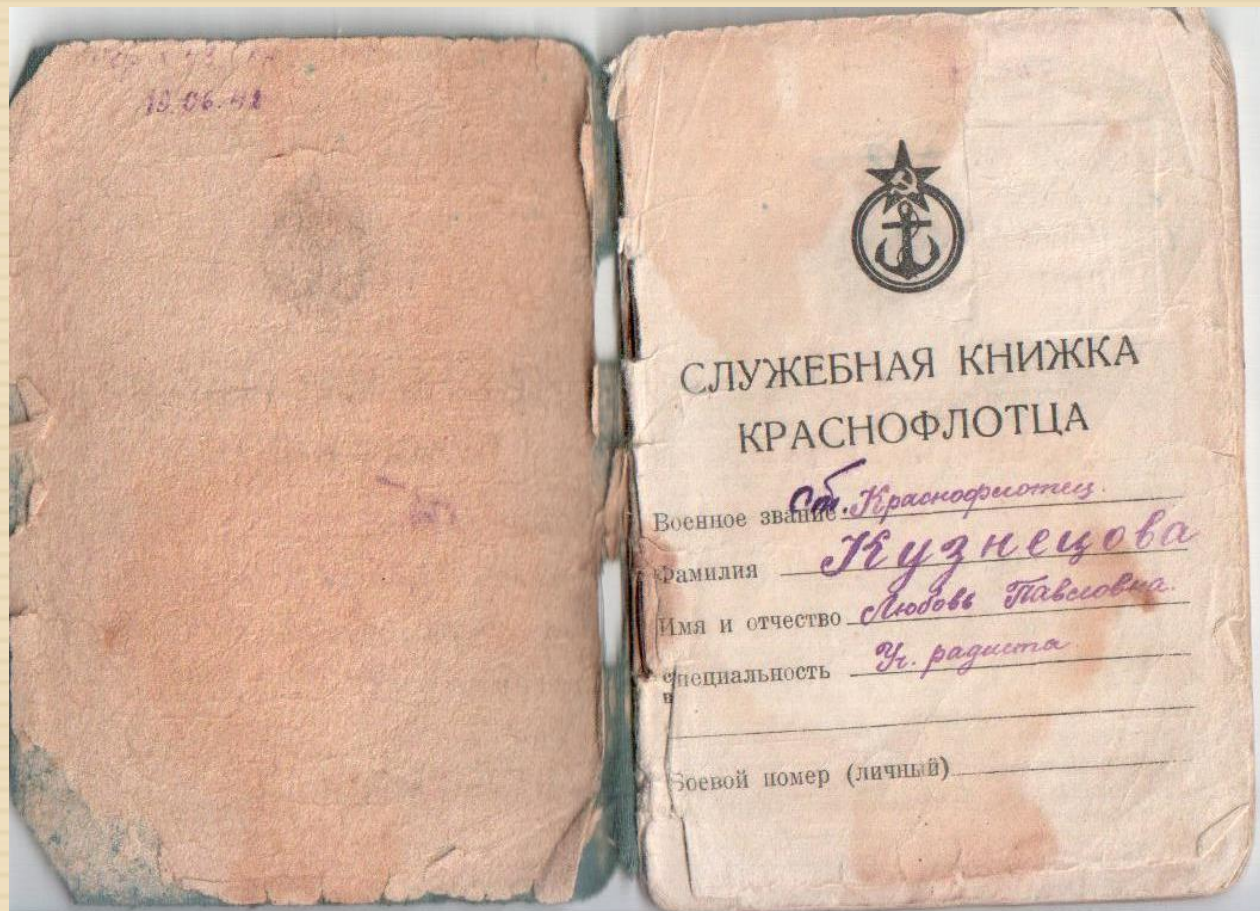 19.06.42
СЛУЖЕБНАЯ КНИЖКА
КРАСНОФЛОТЦА
Военное звание Ст. Краснофлотец.
Фамилия Кузнецова
Имя и отчество Любовь Павловна.
Специальность Уч. радиста
Боевой номер (личный)